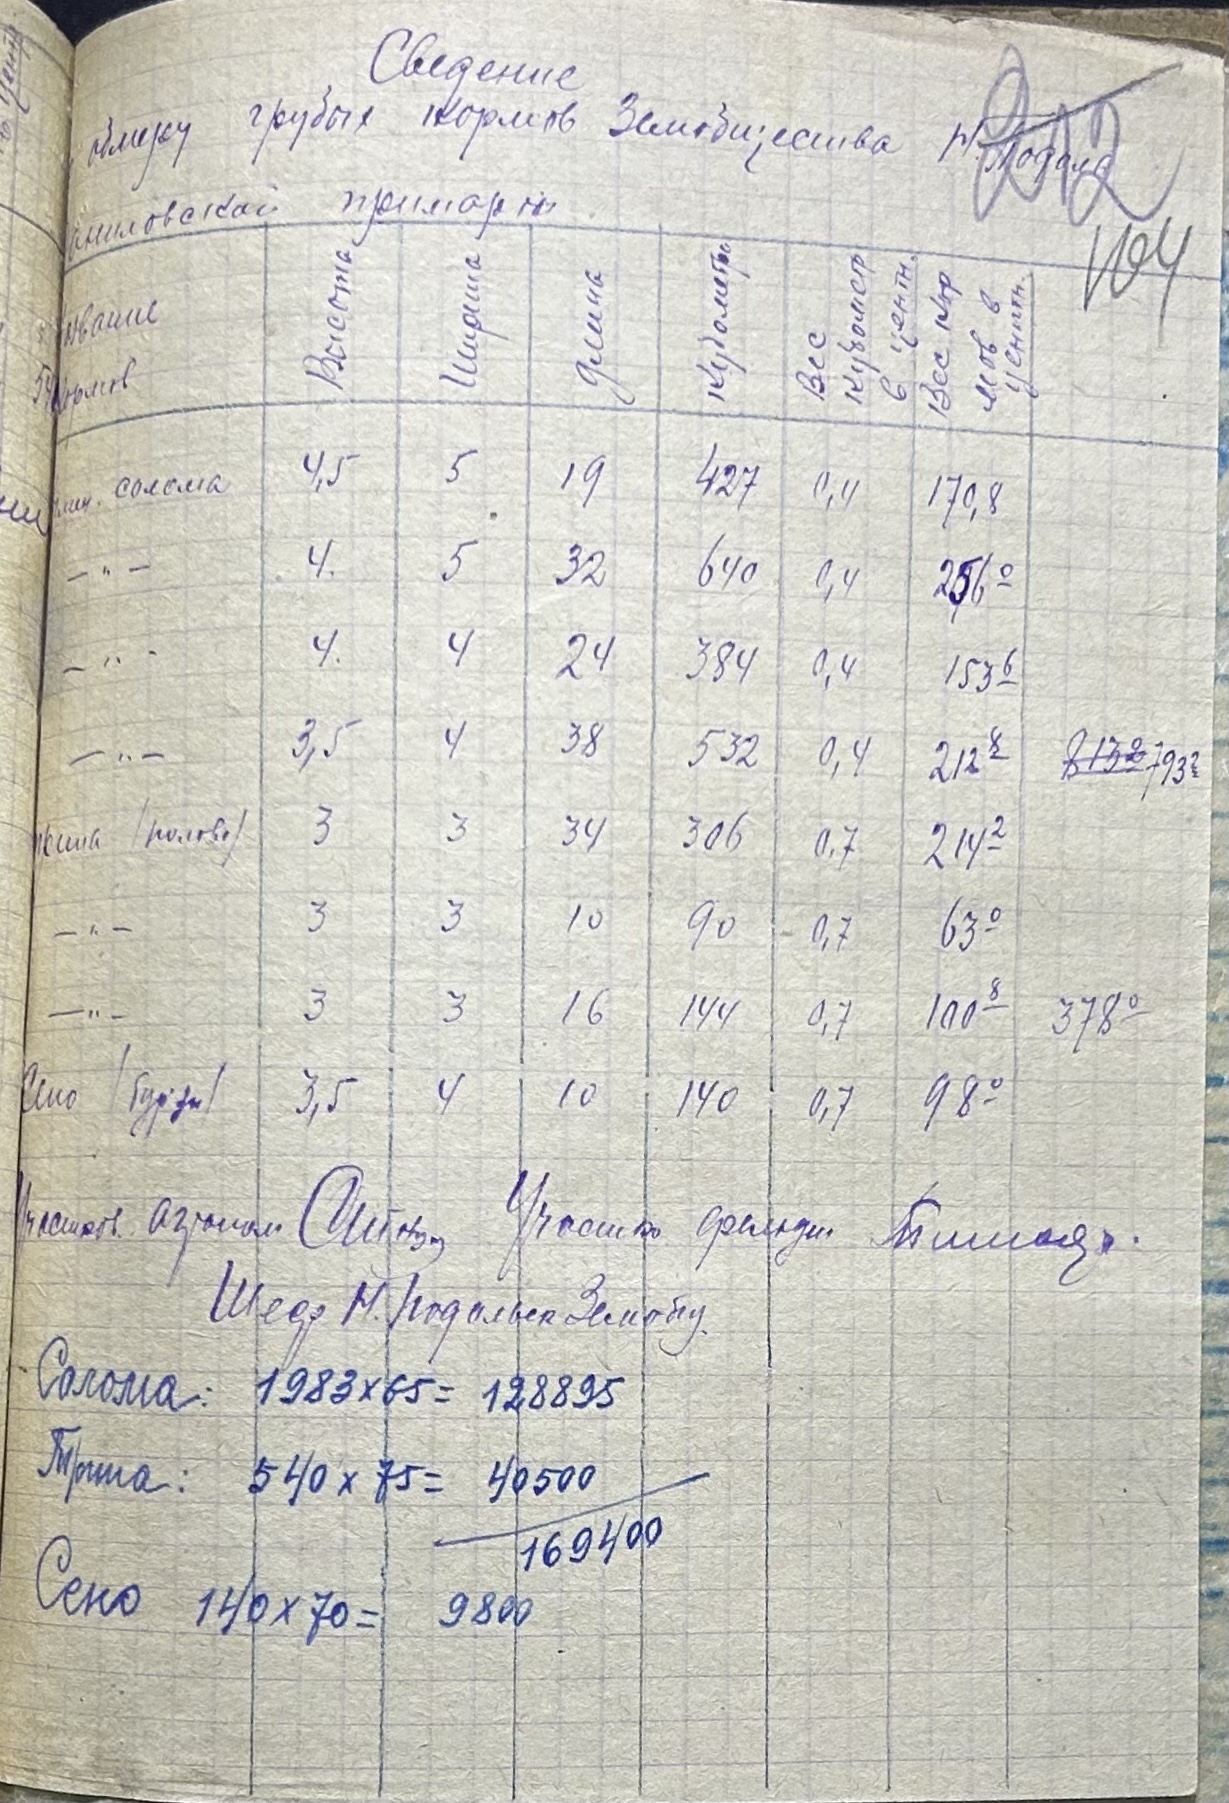 Сведение
обмеру грубых кормовЗемобщества Н.
аниловской примарии
212
104
звание кормов Высота Ширина Длина Кубометр Вес кубометр в центн. Вес кормов в центн.
солома 4,5 5 19 427 0,4 170,8
— „ — 4. 5 32 640 0,4 256 0
— „ - 4. 4 24 384 0,4 153 6
— „ — 3,5 4 38 532 0,4 212 8 813 2 793 2
(полова) 3 3 34 306 0,7 214 2
— „ — 3 3 10 90 0,7 63 0
— „ — 3 3 16 144 0,7 100 8 378 0
Сено 3,5 4 10 140 0,7 98 0
Участков. агроном Участко
Н. Подольск Земобщ
Солома: 1983 x 65 = 128895
540 x 75 = 40500
169400
Сено 140 x 70 = 9800